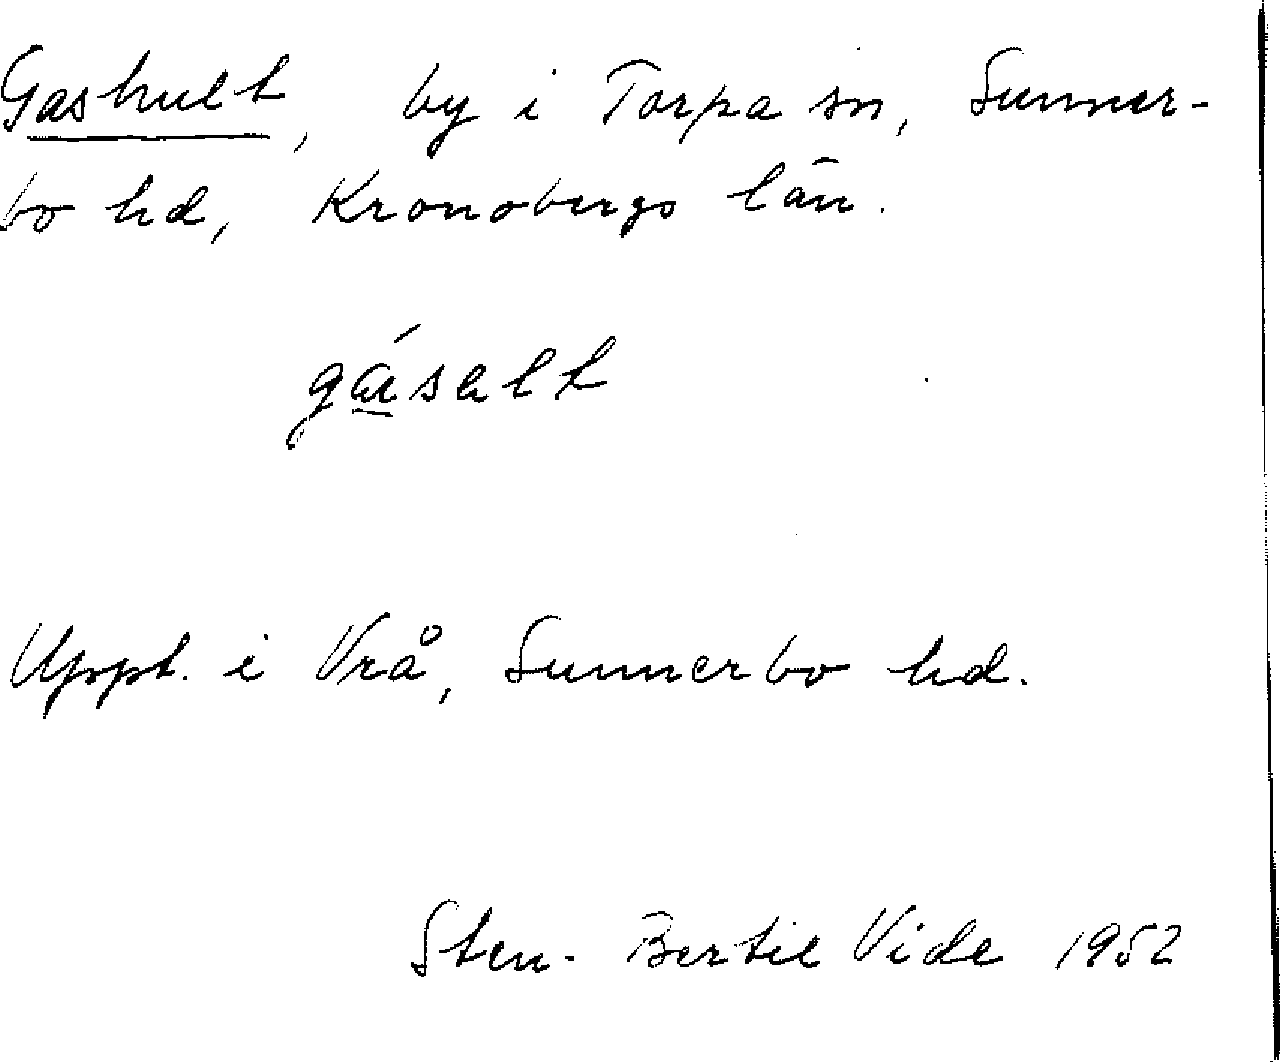 Gashult, by i Torpa sn, Sunner-
bo hd, Kronobergs län.
gá̱salt
Uppt. i Vrå, Sunnerbo hd.
Sten-Bertil Vide 1952